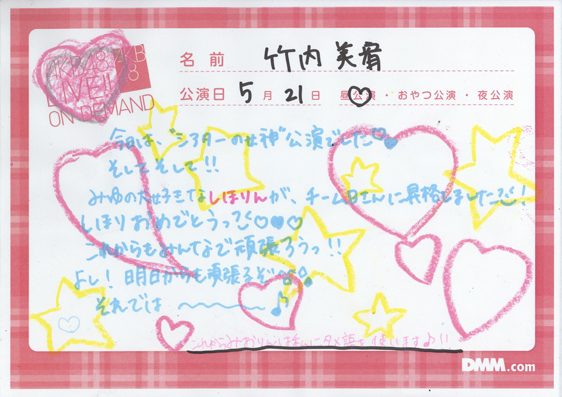 AKB48
LIVE!!
ON DEMAND
名前 竹内美宥
公演日 5月21日 昼公演・おやつ公演・夜公演
今日は、"シアターの女神"公演でした♡♥
そしてそして!!
みゆの大好きなしほりんが、チームBさんに昇格しました!
しほりおめでとうっ♡♥♡
これからもみんなで頑張ろうっ!!
よし!明日からも頑張るぞ♪♪
それでは 〜〜〜〜 ♪
DMM.com